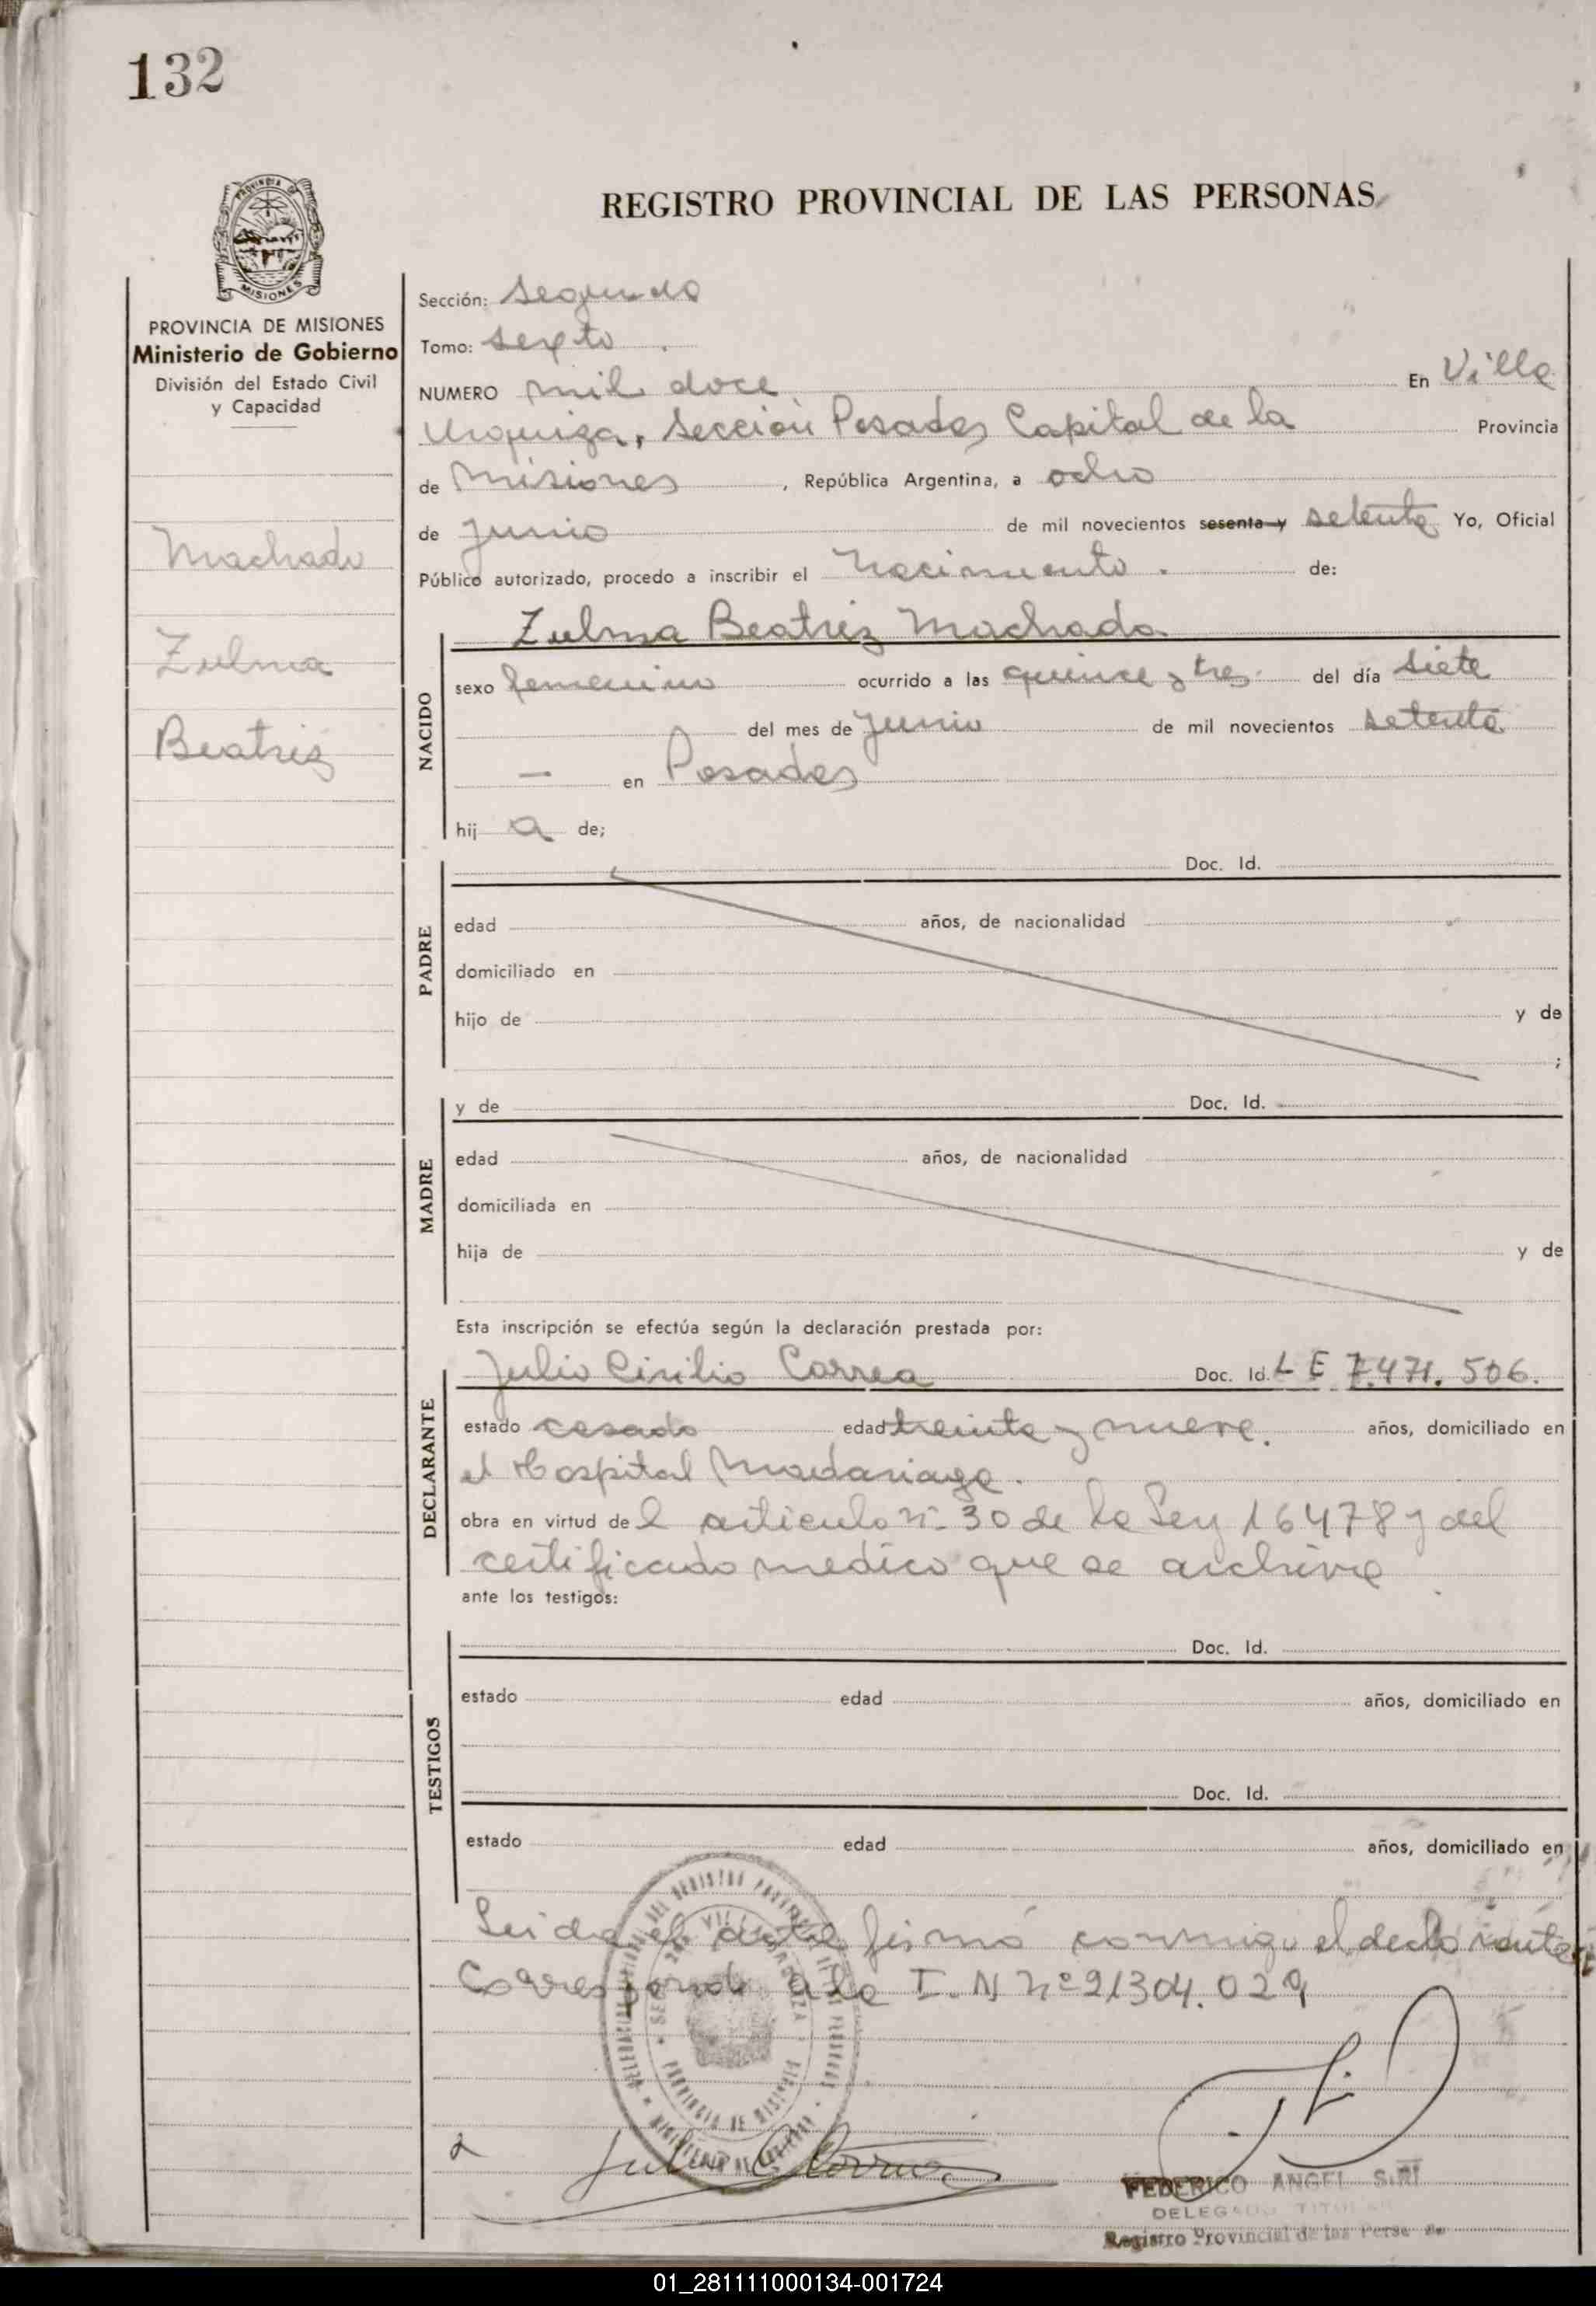 132
REGISTRO PROVINCIAL DE LAS PERSONAS
PROVINCIA DE MISIONES
Ministerio de Gobierno
División del Estado Civil
y Capacidad
Machado
Zulma
Beatriz
Sección: Segunda
Tomo: sexto
NUMERO mil doce En Villa
Urquiza, Sección Posadas Capital de la Provincia
de Misiones , República Argentina, a ocho
de Junio de mil novecientos sesenta y setenta Yo, Oficial
Público autorizado, procedo a inscribir el Nacimiento. de:
Zulma Beatriz Machado
NACIDO
sexo femenino ocurrido a las quince y tres del día siete
del mes de Junio de mil novecientos setenta
— en Posadas
hij a de;
PADRE
Doc. Id.
edad años, de nacionalidad
domiciliado en
hijo de y de
;
MADRE
y de Doc. Id.
edad años, de nacionalidad
domiciliada en
hija de y de
Esta inscripción se efectúa según la declaración prestada por:
DECLARANTE
Julio Cirilio Correa Doc. Id. L E 7.471.506.
estado casado edad treinta y nueve. años, domiciliado en
el Hospital Madariaga.
obra en virtud de l articulo nº 30 de la Ley 16478 y del
certificado medico que se archiva
ante los testigos:
TESTIGOS
Doc. Id.
estado edad años, domiciliado en
Doc. Id.
estado edad años, domiciliado en
Leida el acta firmó conmigo el declarante
Corresponde a la I. N nº 21304.029
PROVINCIA DE MISIONES
FEDERICO ANGEL
DELEGADO TITULAR
Registro Provincial de las
01_281111000134-001724